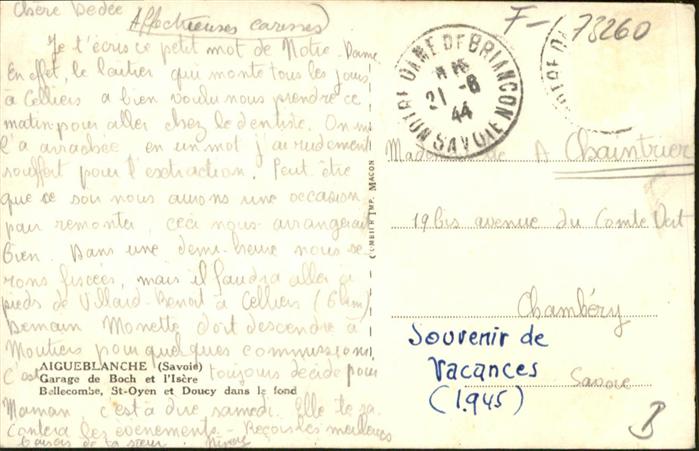 Chère Dédée
Affectueuses caresses
Je t'écris ce petit mot de Notre Dame
En effet, le laitier qui monte tous les jours
à Celliers a bien voulu nous prendre ce
matin pour aller chez le dentiste. On m'
l'a arrachée en un mot j'ai rudement
souffert pour l'extraction. Peut être
que ce soir nous aurons une occasion
pour remonter, ceci nous arrangerait
bien. Dans une demi-heure nous se-
rons fixées, mais il faudra aller à
pieds de Villard-Benoit à Celliers (6 km)
Demain Monette doit descendre à
Moutiers pour quelques commissions
c'est toujours décidé pour
Maman c'est à dire samedi. Elle te ra-
contera les évènements - Reçois les meilleurs
baisers de ta sœur.
AIGUEBLANCHE (Savoie)
Garage de Boch et l'Isère
Bellecombe, St-Oyen et Doucy dans le fond
COMBIER IMP. MACON
F- 73260
NOTRE DAME DE BRIANCON
21 -6
44
SAVOIE
Mademoiselle A Chaintrier
19 bis avenue du Comte Vert
Chambéry
Savoie
Souvenir de
Vacances
(1945)
B